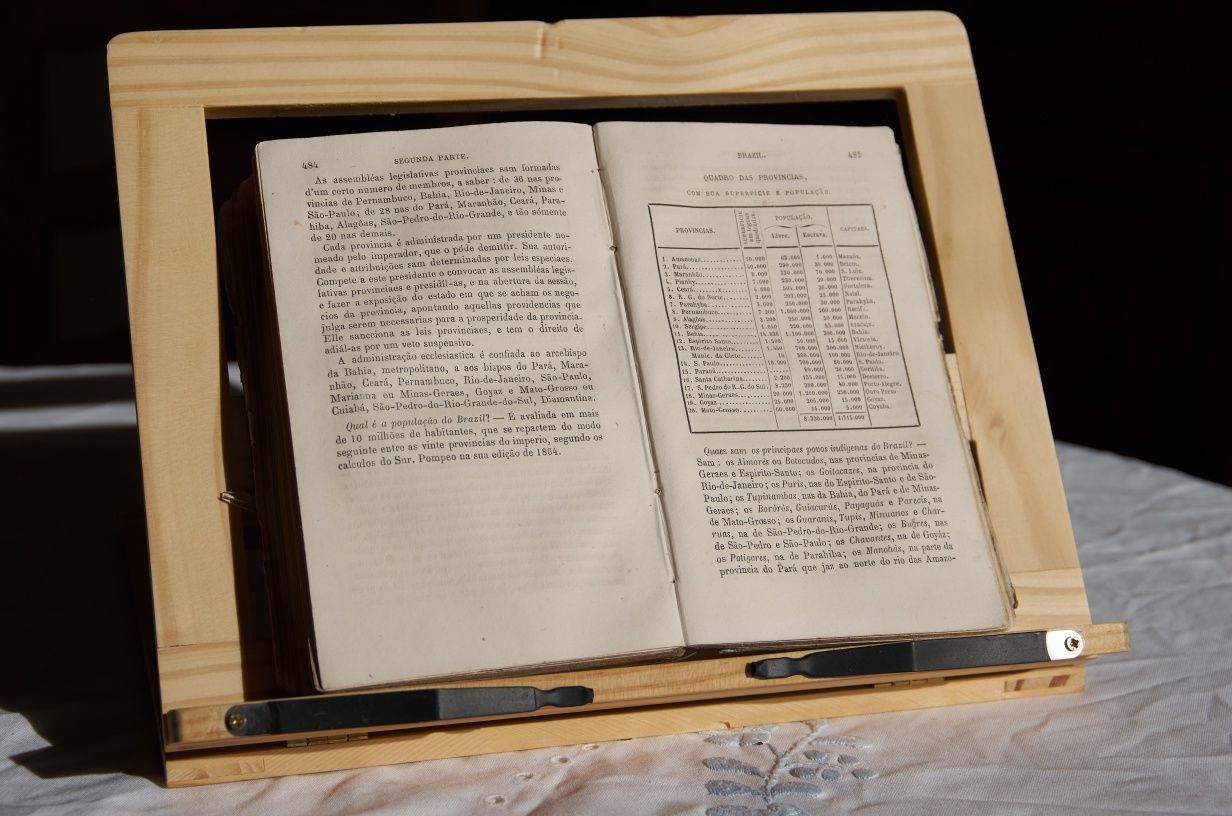 484
SEGUNDA PARTE.
As assembléas legislativas provinciaes sam formadas
d'um certo numero de membros, a saber : de 36 nas pro-
vincias de Pernambuco, Bahia, Rio-de-Janeiro, Minas e
São-Paulo; de 28 nas do Pará, Maranhão, Ceará, Para-
hiba, Alagôas, São-Pedro-do-Rio-Grande, e tão sómente
de 20 nas demais.
Cada provincia é administrada por um presidente no-
meado pelo imperador, que o póde demittir. Sua autori-
dade e attribuições sam determinadas por leis especiaes.
Compete a este presidente o convocar as assembléas legis-
lativas provinciaes e presidil-as, e na abertura da sessão,
e fazer a exposição do estado em que se acham os nego-
cios da provincia, apontando aquellas providencias que
julga serem necessarias para a prosperidade da provincia.
Elle sancciona as leis provinciaes, e tem o direito de
adiál-as por um veto suspensivo.
A administração ecclesiastica é confiada ao arcebispo
da Bahia, metropolitano, a aos bispos do Pará, Mara-
nhão, Ceará, Pernambuco, Rio-de-Janeiro, São-Paulo,
Marianna ou Minas-Geraes, Goyaz e Mato-Grosso ou
Cuiabá, São-Pedro-do-Rio-Grande-do-Sul, Diamantina.
Qual é a população do Brazil? — E avaliada em mais
de 10 milhões de habitantes, que se repartem do modo
seguinte entre as vinte provincias do imperio, segundo os
calculos do Snr. Pompeo na sua edição de 1864.
BRAZIL.
485
QUADRO DAS PROVINCIAS,
COM SUA SUPERFICIE E POPULAÇÃO.
PROVINCIAS. SUPERFICIE em legoas quadradas. POPULAÇÃO. CAPITAES.
Livre. Escrava.
1. Amazonas 1.000 Manáos.
2. Pará Belem.
3. Maranhão 70.000 S. Luiz.
4. Piauhy 20.000 Therezina.
5. Ceará Fortaleza.
6. R. G. do Norte Natal.
7. Parahyba 250.000 30.000 Parahyba
8. Pernambuco 7.200 Recife.
9. Alagôas 250.000 Maceio.
10. Sergipe 220.000 Aracajú.
11. Bahia 1.100.000 Bahia.
12. Espirito Santo 50.000 15.000 Victoria.
13. Rio-de-Janeiro Nictheroy.
Munic. da Côrte 100.000 Rio-de-Janeiro
14. S. Paulo 700.000 80.000 S. Paulo.
15. Paraná 20.000 Coritiba.
16. Santa Catharina 2.200 135.000 15.000 Desterro.
17. S. Pedro do R. G. do Sul 40.000 Porto-Alegre.
18. Minas-Geraes 20.000 1.200.000 250.000 Ouro Preto
19. Goyaz 205.000 15.000 Goyaz.
20. Mato-Grosso 5.000 Cuyaba.
1.715.000
Quaes sam os principaes povos indigenas do Brazil? —
Sam : os Aimorés ou Botocudos, nas provincias de Minas-
Geraes e Espirito-Santo; os Goitacazes, na provincia do
Rio-de-Janeiro; os Puris, nas do Espirito-Santo e de São-
Paulo; os Tupinambas, nas da Bahia, do Pará e de Minas-
Geraes; os Borórós, Guiacurús, Payaguás e Parecis, na
de Mato-Grosso; os Guaranis, Tupis, Minuanos e Char-
ruas, na de São-Pedro-do-Rio-Grande; os Bugres, nas
de São-Pedro e São-Paulo; os Chavantes, na de Goyáz;
os Potigares, na de Parahiba; os Manohás, na parte da
provincia do Pará que jaz ao norte do rio das Amazo-